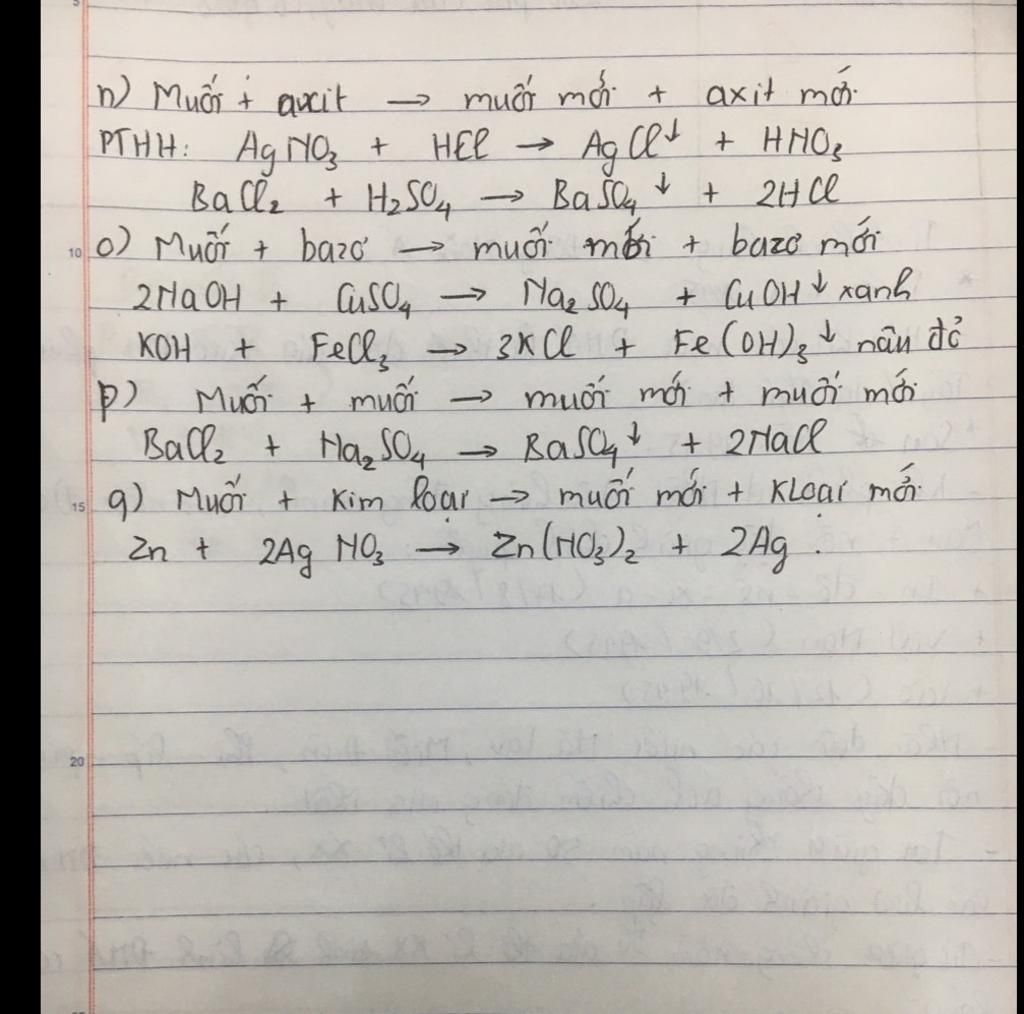 n) Muối + axit → muối mới + axit mới
PTHH: AgNO₃ + HCl → AgCl↓ + HNO₃
BaCl₂ + H₂SO₄ → BaSO₄↓ + 2HCl
10 o) Muối + bazơ → muối mới + bazơ mới
2NaOH + CuSO₄ → Na₂SO₄ + CuOH↓ xanh
KOH + FeCl₃ → 3KCl + Fe(OH)₃↓ nâu đỏ
p) Muối + muối → muối mới + muối mới
BaCl₂ + Na₂SO₄ → BaSO₄↓ + 2NaCl
15 q) Muối + Kim loại → muối mới + KLoại mới
Zn + 2AgNO₃ → Zn(NO₃)₂ + 2Ag.
20